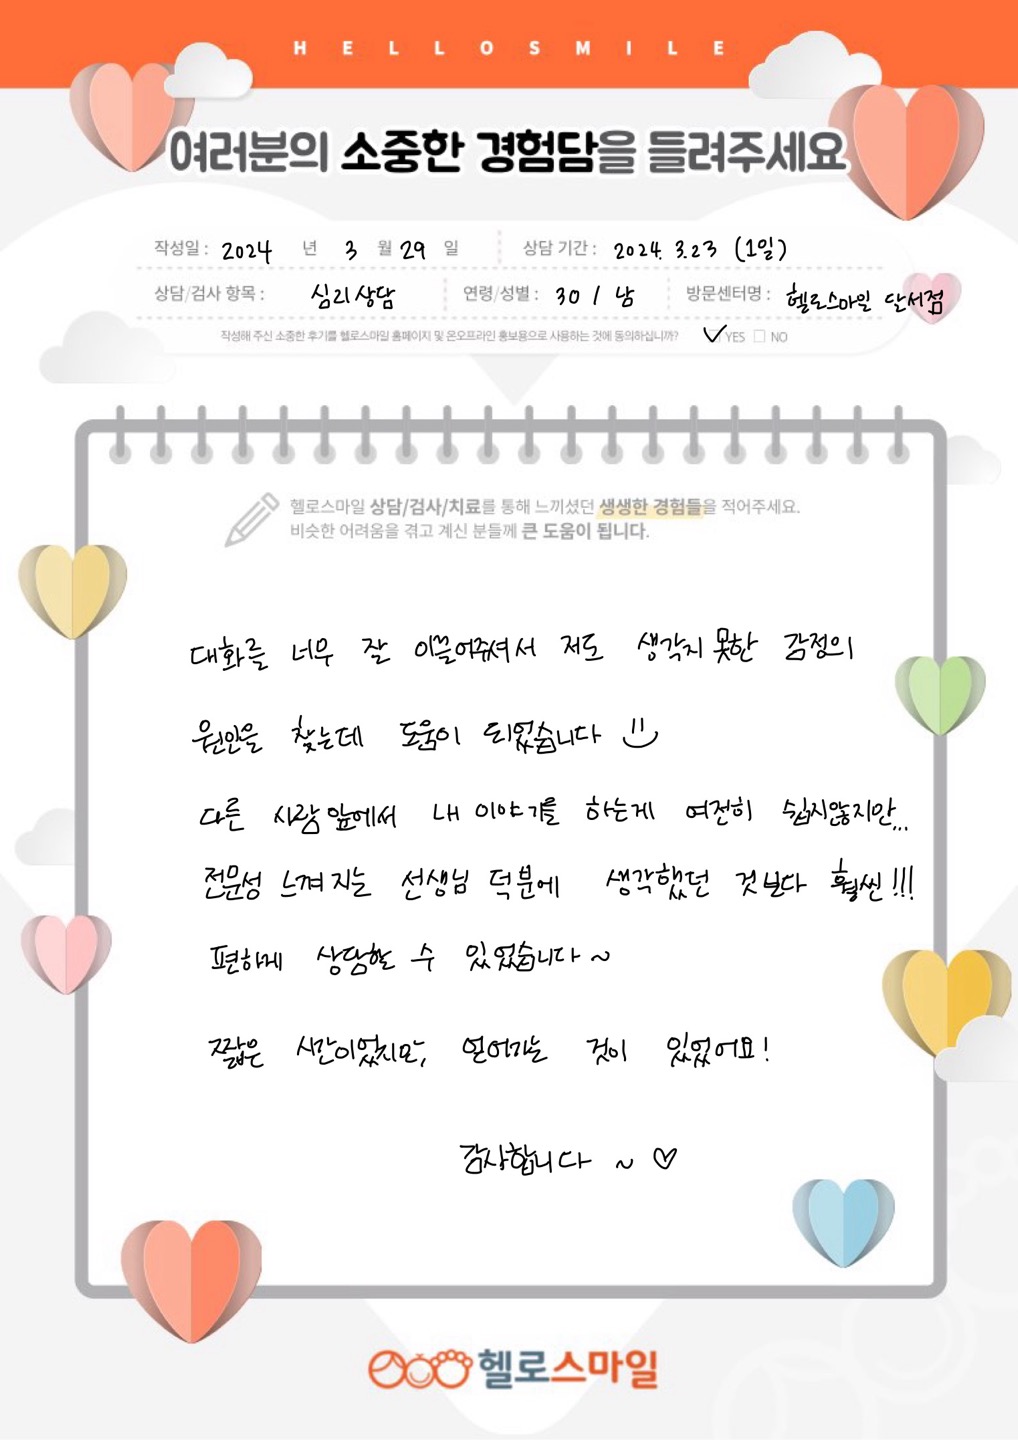 HELLOSMILE
여러분의 소중한 경험담을 들려주세요
작성일 : 2024 년 3 월 29 일 상담 기간 : 2024. 3.23 (1일)
상담/검사 항목 : 심리상담 연령/성별 : 30 / 남 방문센터명 : 헬로스마일 달서점
작성해 주신 소중한 후기를 헬로스마일 홈페이지 및 온오프라인 홍보용으로 사용하는 것에 동의하십니까? ✓ YES □ NO
헬로스마일 상담/검사/치료를 통해 느끼셨던 생생한 경험들을 적어주세요.
비슷한 어려움을 겪고 계신 분들께 큰 도움이 됩니다.
대화를 너무 잘 이끌어주셔서 저도 생각지 못한 감정의
원인을 찾는데 도움이 되었습니다
다른 사람 앞에서 내 이야기를 하는게 여전히 쉽지않지만...
전문성 느껴지는 선생님 덕분에 생각했던 것보다 훨씬!!!
편하게 상담할 수 있었습니다~
짧은 시간이었지만, 얻어가는 것이 있었어요!
감사합니다 ~ ♡
헬로스마일